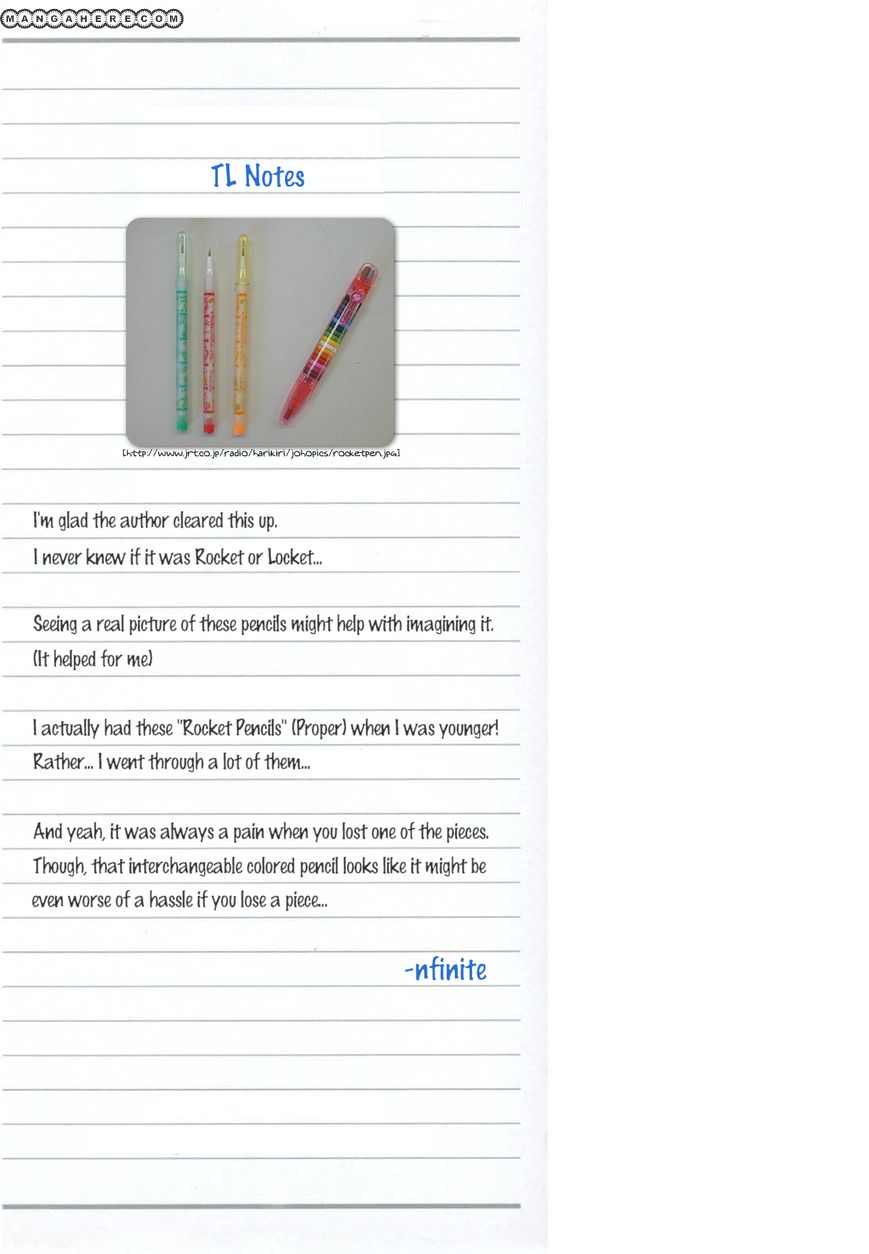 MANGAHERE.COM
TL Notes
[http://www.jrt.co.jp/radio/harikiri/johopics/rocketpen.jpg]
I'm glad the author cleared this up.
I never knew if it was Rocket or Locket...
Seeing a real picture of these pencils might help with imagining it.
(It helped for me)
I actually had these "Rocket Pencils" (Proper) when I was younger!
Rather... I went through a lot of them...
And yeah, it was always a pain when you lost one of the pieces.
Though, that interchangeable colored pencil looks like it might be
even worse of a hassle if you lose a piece...
-nfinite